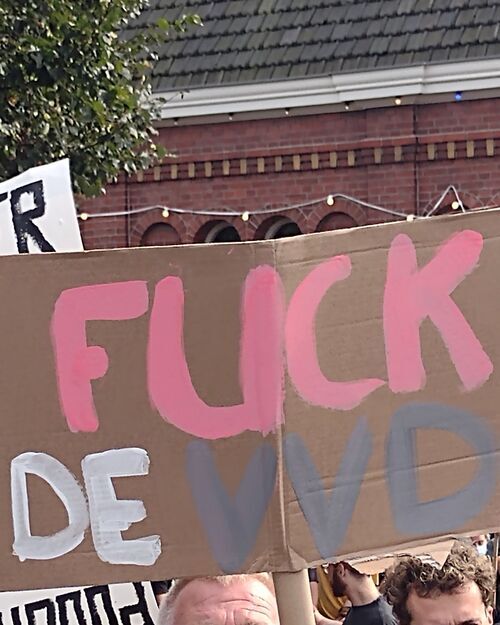 TR
FUCK
DE VVD